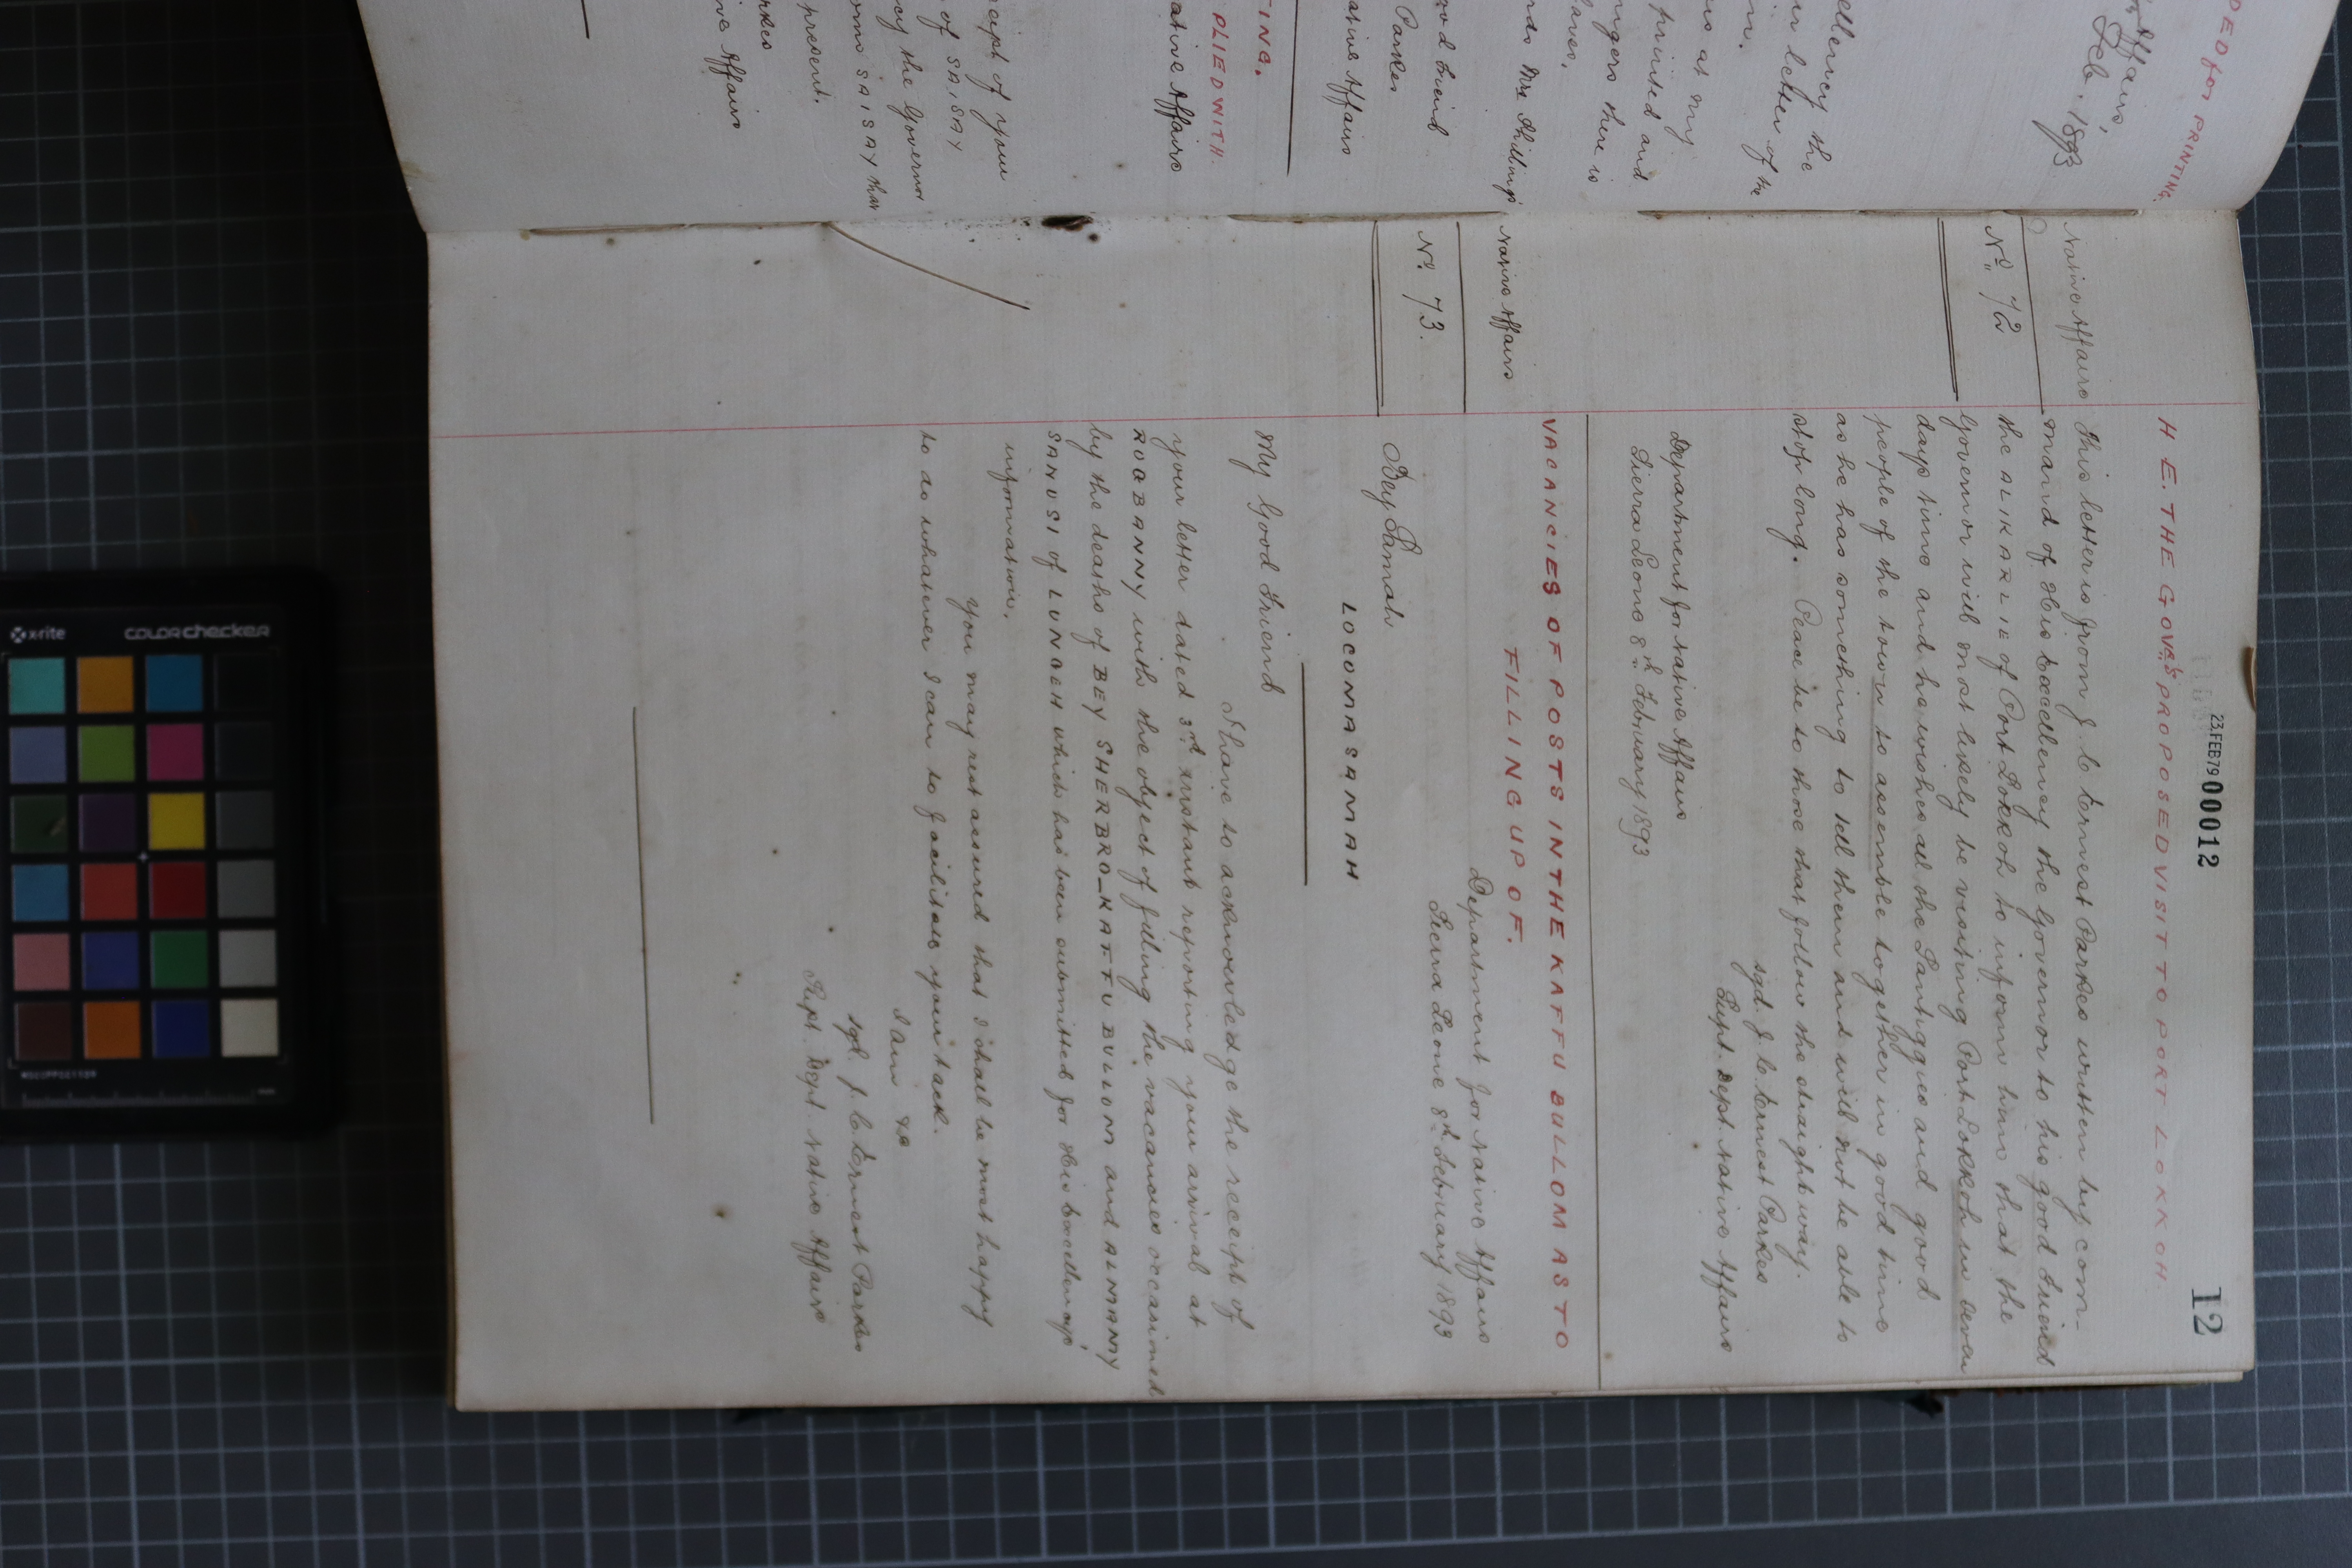 DED for PRINTING.
Affairs,
Feb. 1893
ellency the
letter of the
n.
us at my
printed and
ngers there is
nds Mr Phillips
ood friend
Parkes
ative Affairs
TING.
PLIED WITH.
ative Affairs
ceipt of your
of SAISAY
cy the Governor
SAISAY that
present.
arkes
ve Affairs
23. FEB 79 00012
12
H.E. THE GOVR'S PROPOSED VISIT TO PORT LOKKOH.
Native Affairs
No 72
This letter is from J. C. Ernest Parkes written by com-
mand of His Excellency the Governor to his good friend
the ALIKARLIE of Port Lokkoh to inform him that the
Governor will most likely be visiting Port Lokkoh in seven
days time and he wishes all the Santiggies and good
people of the town to assemble together in good time
as he has something to tell them and will not be able to
stop long. Peace be to those that follow the straight way.
sgd. J. C. Ernest Parkes
Supt. Dept. Native Affairs
Department for Native Affairs
Sierra Leone 8th February 1893
VACANCIES OF POSTS IN THE KAFFU BULLOM AS TO
FILLING UP OF.
Native Affairs
No. 73.
Department for Native Affairs
Sierra Leone 8th February 1893
Bey Samah
LOCOMASAMAH
My Good Friend
I have to acknowledge the receipt of
your letter dated 3rd instant reporting your arrival at
ROGBANNY with the object of filling the vacancies occasioned
by the deaths of BEY SHERBRO-KAFFU BULLOM and ALMAMY
SANUSI of LUNGEH which has been submitted for His Excellency's
information.
You may rest assured that I shall be most happy
to do whatever I can to facilitate your task.
I am &c
sgd. J. C. Ernest Parkes
Supt. Dept. Native Affairs